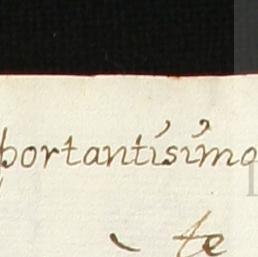 portantísímo
te